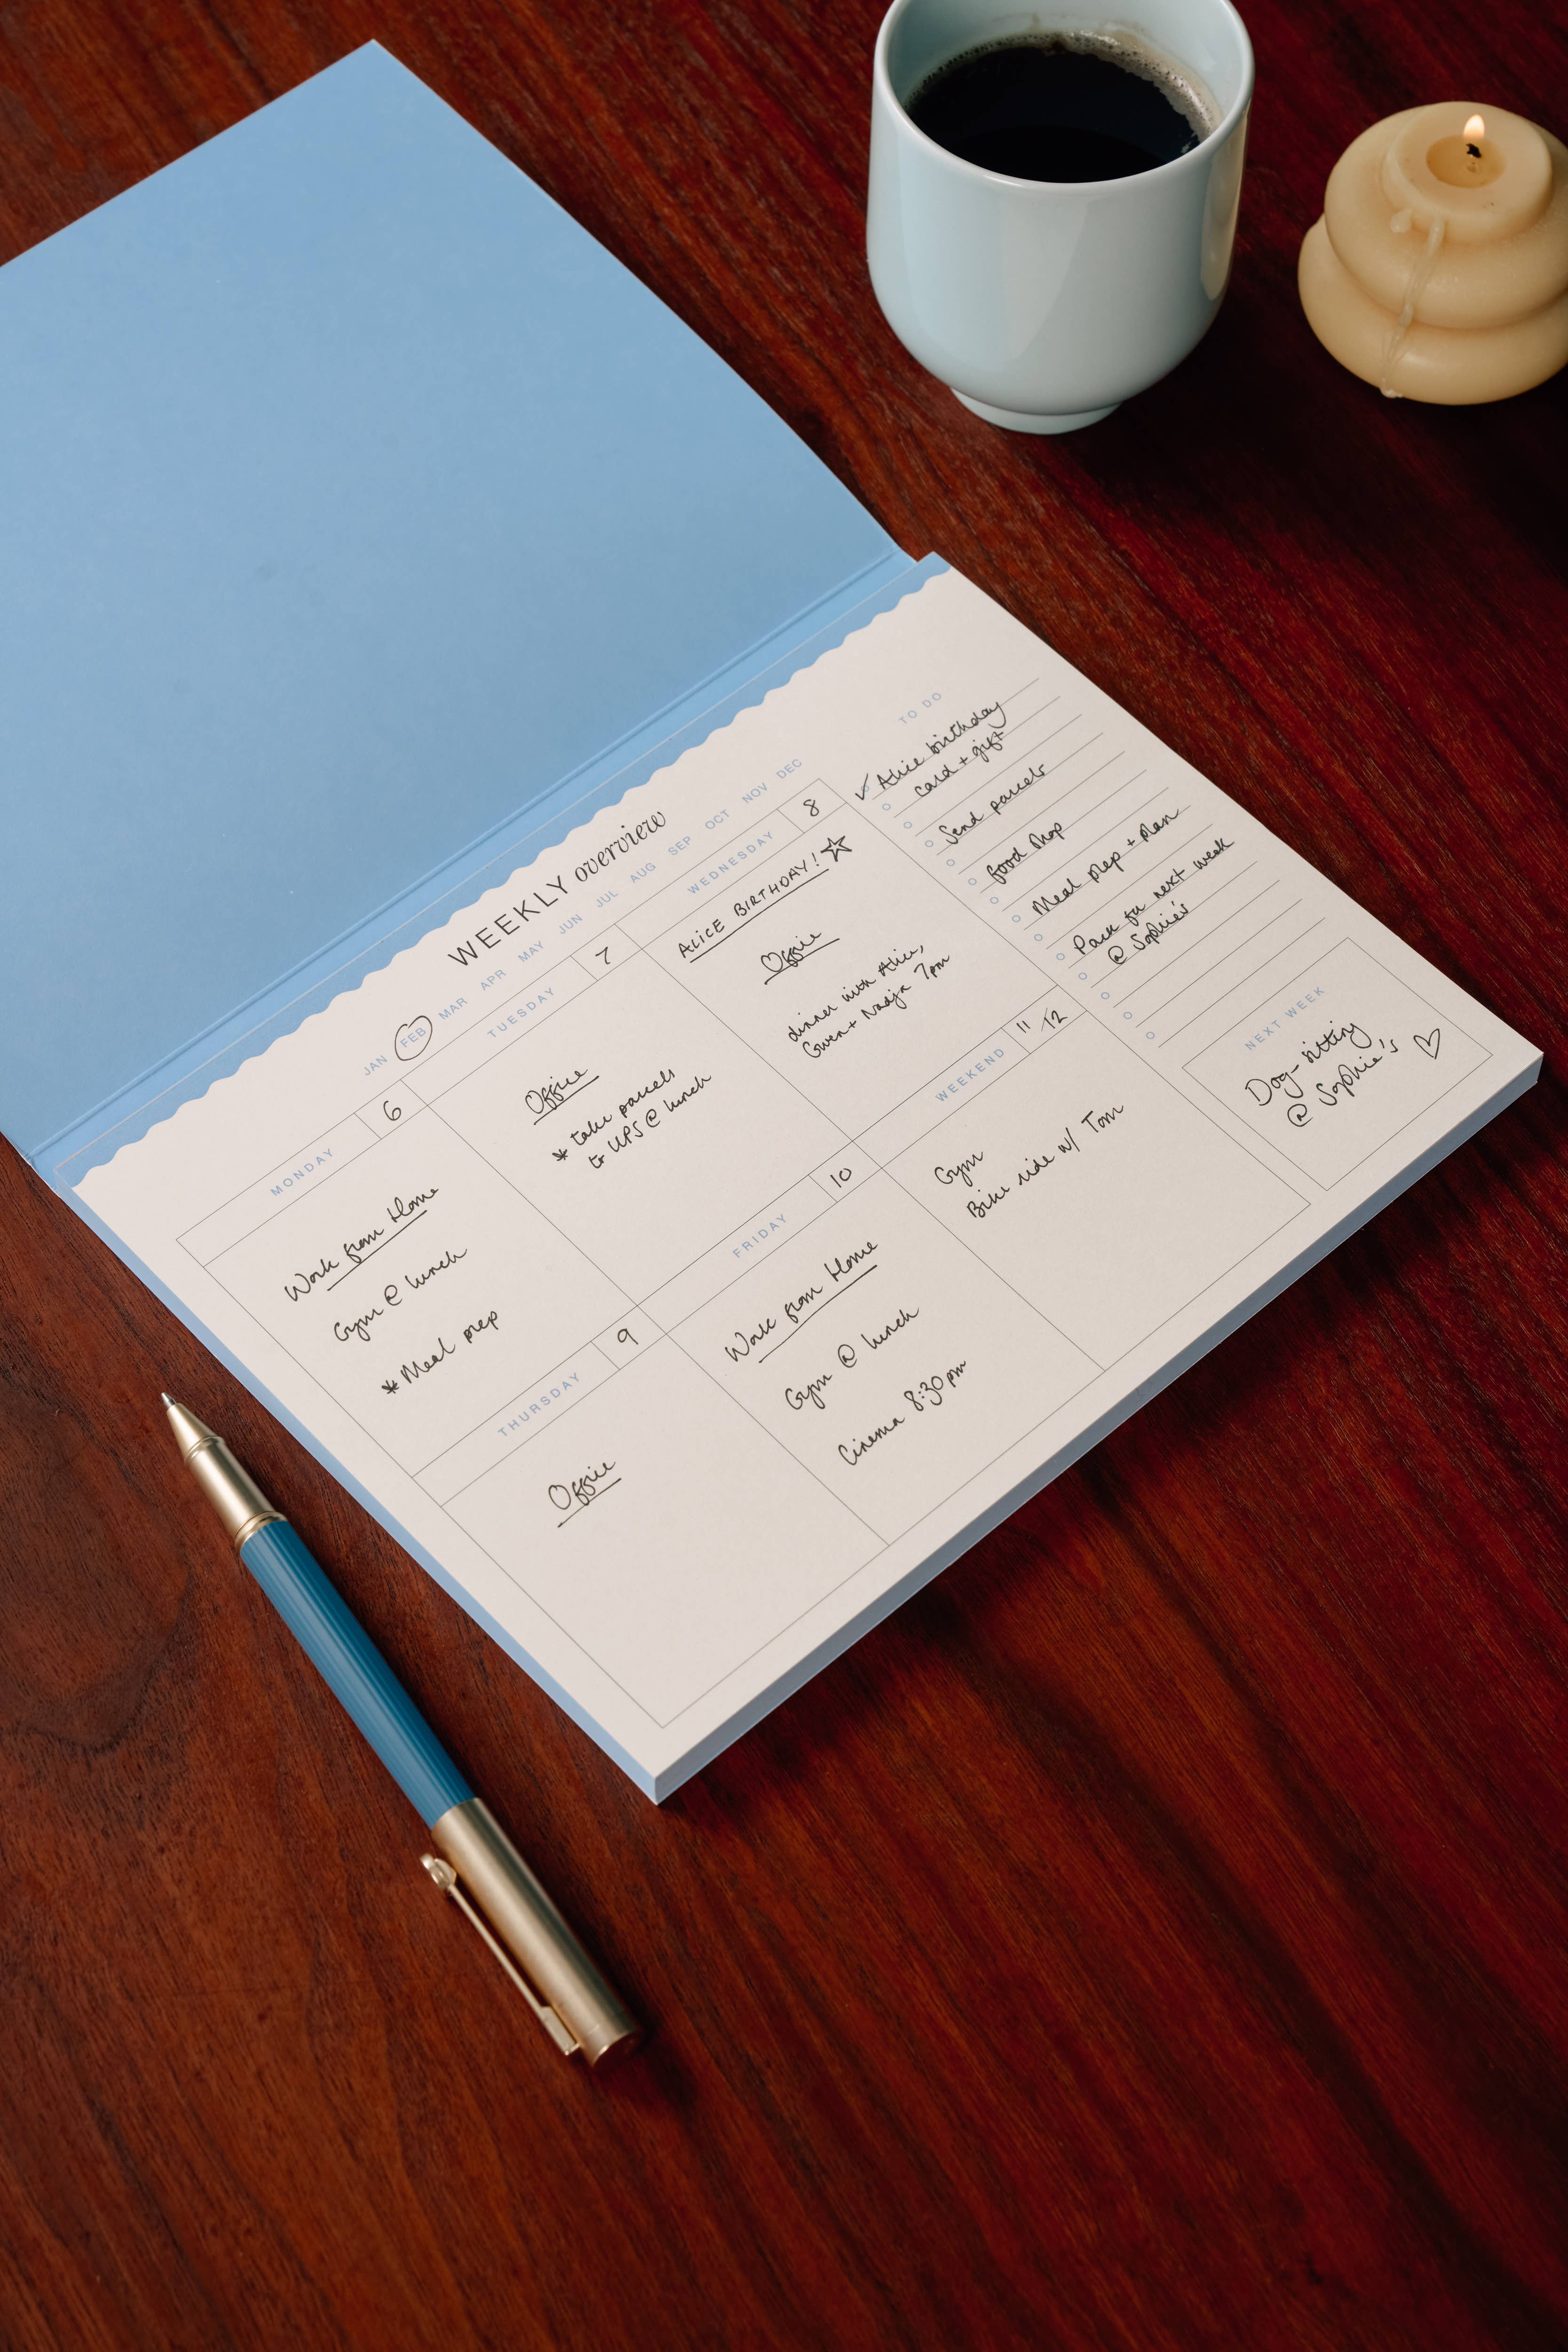 WEEKLY overview
JAN FEB MAR APR MAY JUN JUL AUG SEP OCT NOV DEC
MONDAY 6
Work from Home
Gym @ lunch
* Meal prep
TUESDAY 7
Office
* take parcels
to UPS @ lunch
WEDNESDAY 8
ALICE BIRTHDAY! ☆
Office
dinner with Alice,
Gwen + Nadja 7pm
THURSDAY 9
Office
FRIDAY 10
Work from Home
Gym @ lunch
Cinema 8:30pm
WEEKEND 11/12
Gym
Bike ride w/ Tom
TO DO
✓ Alice birthday
card + gift
Send parcels
food shop
Meal prep + plan
Pack for next week
@ Sophie's
NEXT WEEK
Dog-sitting
@ Sophie's ♡